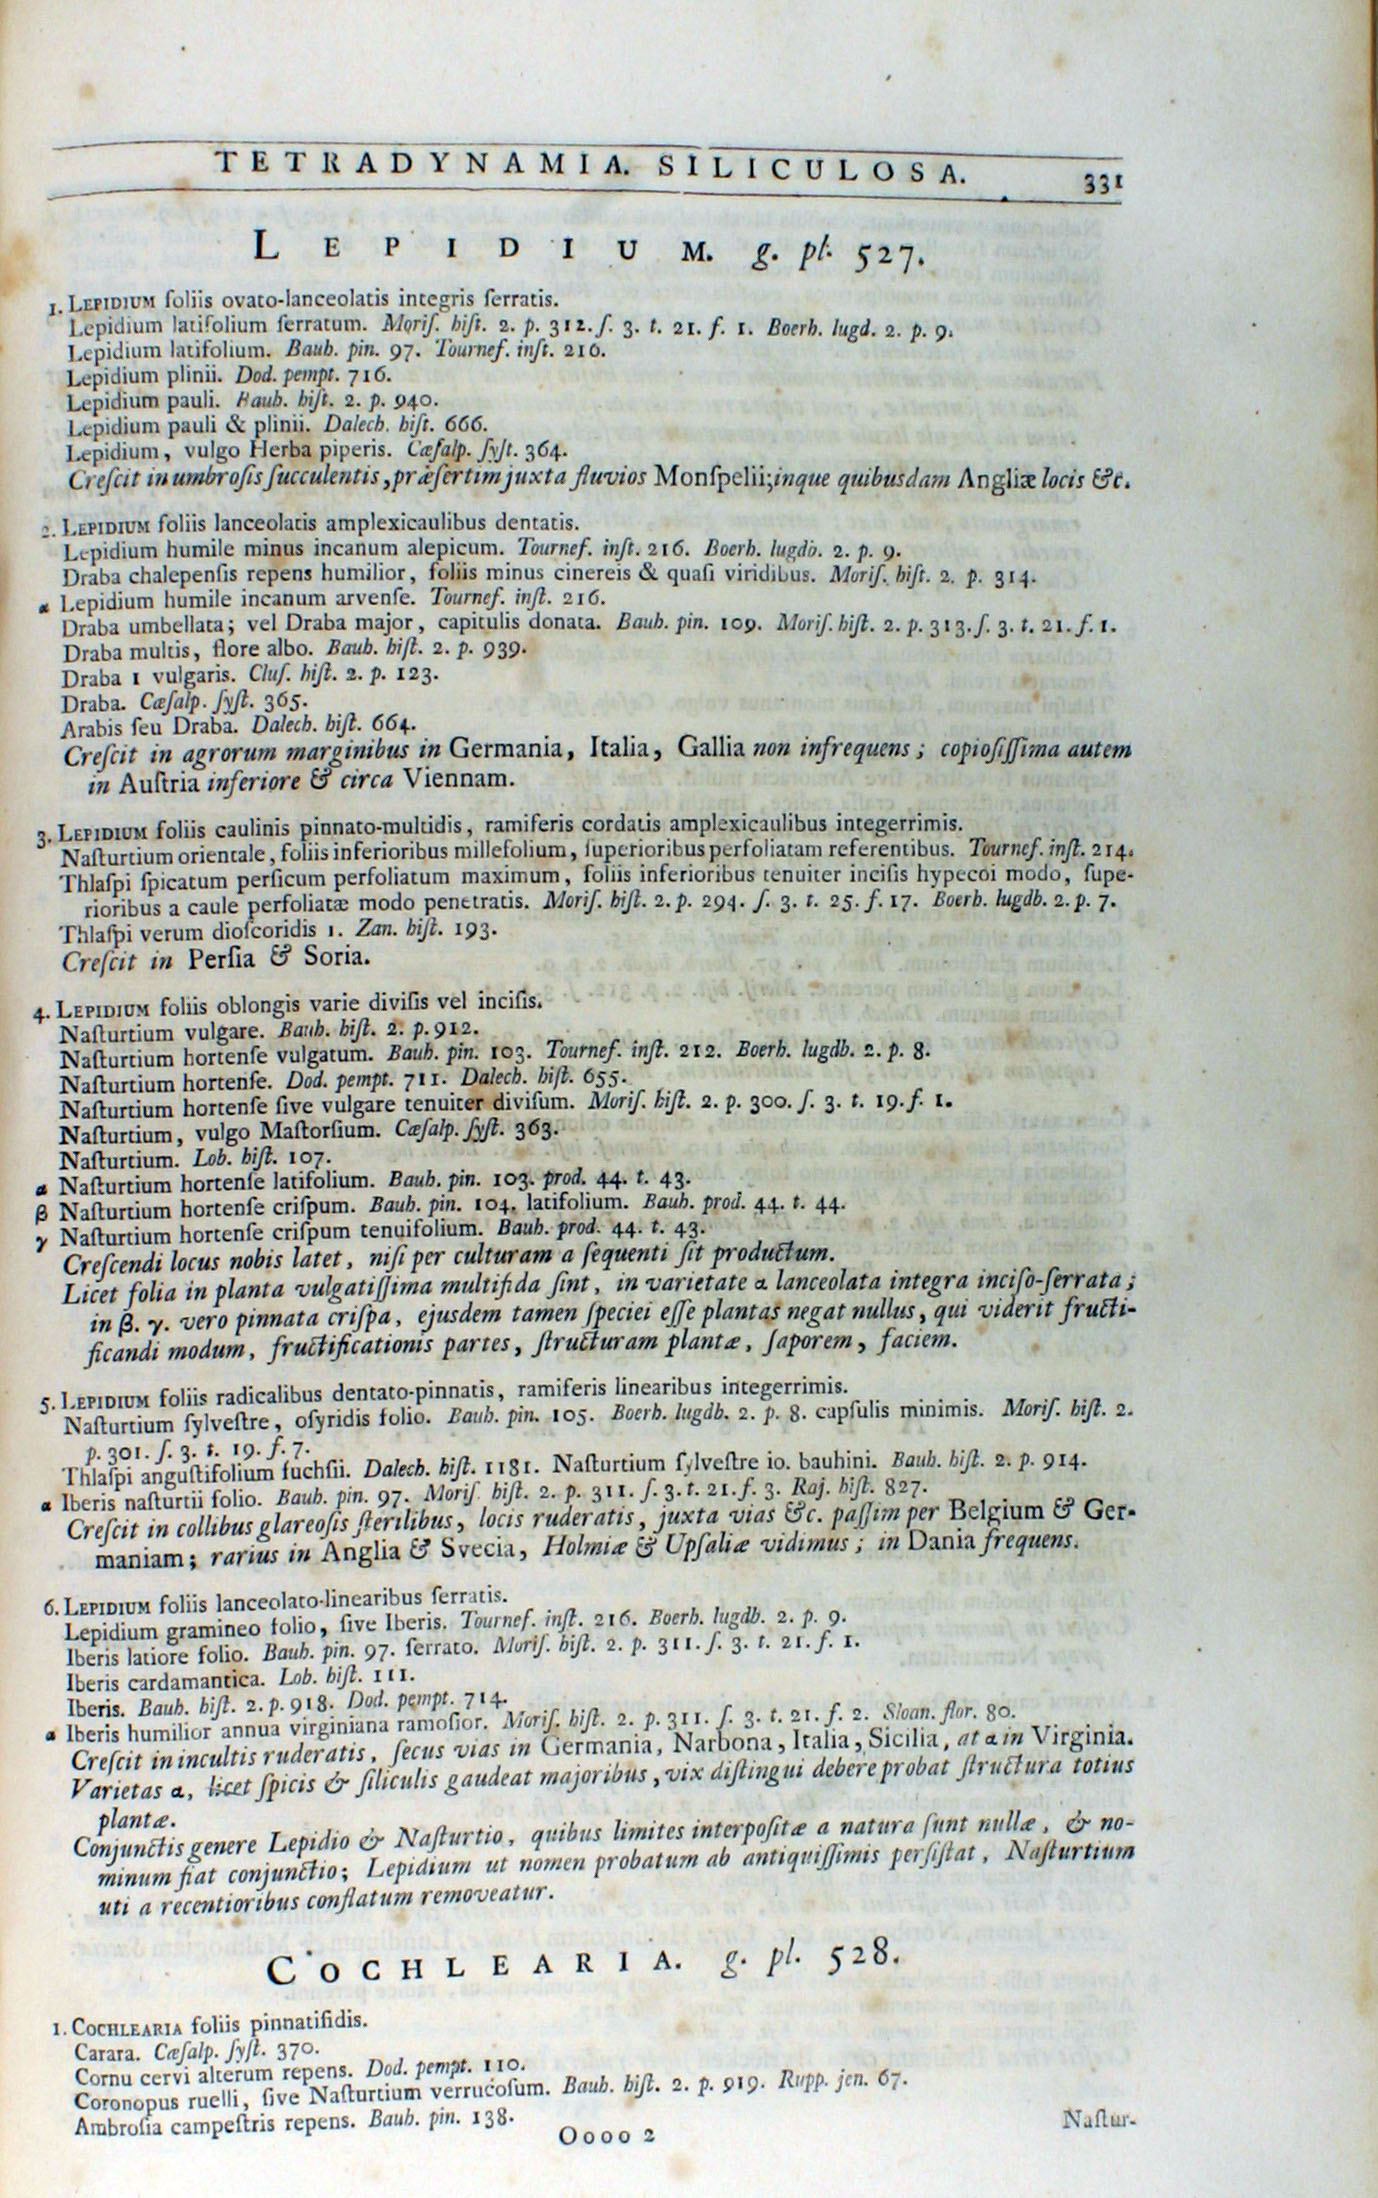 TETRADYNAMIA. SILICULOSA. 331
LEPIDIUM. g. pl. 527.
1. LEPIDIUM foliis ovato-lanceolatis integris ſerratis.
Lepidium latifolium ſerratum. Moriſ. hiſt. 2. p. 312. ſ. 3. t. 21. f. 1. Boerh. lugd. 2. p. 9.
Lepidium latifolium. Bauh. pin. 97. Tournef. inſt. 216.
Lepidium plinii. Dod. pempt. 716.
Lepidium pauli. Bauh. hiſt. 2. p. 940.
Lepidium pauli & plinii. Dalech. hiſt. 666.
Lepidium, vulgo Herba piperis. Cæſalp. ſyſt. 364.
Creſcit in umbroſis ſucculentis, præſertim juxta fluvios Monſpelii; inque quibusdam Angliæ locis &c.
2. LEPIDIUM foliis lanceolatis amplexicaulibus dentatis.
Lepidium humile minus incanum alepicum. Tournef. inſt. 216. Boerh. lugdb. 2. p. 9.
Draba chalepenſis repens humilior, foliis minus cinereis & quaſi viridibus. Moriſ. hiſt. 2. p. 314.
α Lepidium humile incanum arvenſe. Tournef. inſt. 216.
Draba umbellata; vel Draba major, capitulis donata. Bauh. pin. 109. Moriſ. hiſt. 2. p. 313. ſ. 3. t. 21. f. 1.
Draba multis, flore albo. Bauh. hiſt. 2. p. 939.
Draba 1 vulgaris. Cluſ. hiſt. 2. p. 123.
Draba. Cæſalp. ſyſt. 365.
Arabis ſeu Draba. Dalech. hiſt. 664.
Creſcit in agrorum marginibus in Germania, Italia, Gallia non infrequens; copioſiſſima autem
in Auſtria inferiore & circa Viennam.
3. LEPIDIUM foliis caulinis pinnato-multidis, ramiferis cordatis amplexicaulibus integerrimis.
Naſturtium orientale, foliis inferioribus millefolium, ſuperioribus perfoliatam referentibus. Tournef. inſt. 214.
Thlaſpi ſpicatum perſicum perfoliatum maximum, foliis inferioribus tenuiter inciſis hypecoi modo, ſupe-
rioribus a caule perfoliatæ modo penetratis. Moriſ. hiſt. 2. p. 294. ſ. 3. t. 25. f. 17. Boerh. lugdb. 2. p. 7.
Thlaſpi verum dioſcoridis 1. Zan. hiſt. 193.
Creſcit in Perſia & Soria.
4. LEPIDIUM foliis oblongis varie diviſis vel inciſis.
Naſturtium vulgare. Bauh. hiſt. 2. p. 912.
Naſturtium hortenſe vulgatum. Bauh. pin. 103. Tournef. inſt. 212. Boerh. lugdb. 2. p. 8.
Naſturtium hortenſe. Dod. pempt. 711. Dalech. hiſt. 655.
Naſturtium hortenſe ſive vulgare tenuiter diviſum. Moriſ. hiſt. 2. p. 300. ſ. 3. t. 19. f. 1.
Naſturtium, vulgo Maſtorſium. Cæſalp. ſyſt. 363.
Naſturtium. Lob. hiſt. 107.
α Naſturtium hortenſe latifolium. Bauh. pin. 103. prod. 44. t. 43.
β Naſturtium hortenſe criſpum. Bauh. pin. 104. latifolium. Bauh. prod. 44. t. 44.
γ Naſturtium hortenſe criſpum tenuifolium. Bauh. prod. 44. t. 43.
Creſcendi locus nobis latet, niſi per culturam a ſequenti ſit productum.
Licet folia in planta vulgatiſſima multifida ſint, in varietate α lanceolata integra inciſo-ſerrata;
in β. γ. vero pinnata criſpa, ejusdem tamen ſpeciei eſſe plantas negat nullus, qui viderit fructi-
ficandi modum, fructificationis partes, ſtructuram plantæ, ſaporem, faciem.
5. LEPIDIUM foliis radicalibus dentato-pinnatis, ramiferis linearibus integerrimis.
Naſturtium ſylveſtre, oſyridis folio. Bauh. pin. 105. Boerh. lugdb. 2. p. 8. capſulis minimis. Moriſ. hiſt. 2.
p. 301. ſ. 3. t. 19. f. 7.
Thlaſpi anguſtifolium fuchſii. Dalech. hiſt. 1181. Naſturtium ſylveſtre io. bauhini. Bauh. hiſt. 2. p. 914.
α Iberis naſturtii folio. Bauh. pin. 97. Moriſ. hiſt. 2. p. 311. ſ. 3. t. 21. f. 3. Raj. hiſt. 827.
Creſcit in collibus glareoſis ſterilibus, locis ruderatis, juxta vias &c. paſſim per Belgium & Ger-
maniam; rarius in Anglia & Svecia, Holmiæ & Upſaliæ vidimus; in Dania frequens.
6. LEPIDIUM foliis lanceolato-linearibus ſerratis.
Lepidium gramineo folio, ſive Iberis. Tournef. inſt. 216. Boerh. lugdb. 2. p. 9.
Iberis latiore folio. Bauh. pin. 97. ſerrato. Moriſ. hiſt. 2. p. 311. ſ. 3. t. 21. f. 1.
Iberis cardamantica. Lob. hiſt. 111.
Iberis. Bauh. hiſt. 2. p. 918. Dod. pempt. 714.
α Iberis humilior annua virginiana ramoſior. Moriſ. hiſt. 2. p. 311. ſ. 3. t. 21. f. 2. Sloan. flor. 80.
Creſcit in incultis ruderatis, ſecus vias in Germania, Narbona, Italia, Sicilia, at α in Virginia.
Varietas α, licet ſpicis & ſiliculis gaudeat majoribus, vix diſtingui debere probat ſtructura totius
plantæ.
Conjunctis genere Lepidio & Naſturtio, quibus limites interpoſitæ a natura ſunt nullæ, & no-
minum fiat conjunctio; Lepidium ut nomen probatum ab antiquiſſimis perſiſtat, Naſturtium
uti a recentioribus conflatum removeatur.
COCHLEARIA. g. pl. 528.
1. COCHLEARIA foliis pinnatifidis.
Carara. Cæſalp. ſyſt. 370.
Cornu cervi alterum repens. Dod. pempt. 110.
Coronopus ruelli, ſive Naſturtium verrucoſum. Bauh. hiſt. 2. p. 919. Rupp. jen. 67.
Ambroſia campeſtris repens. Bauh. pin. 138.
Oooo 2 Naſtur-